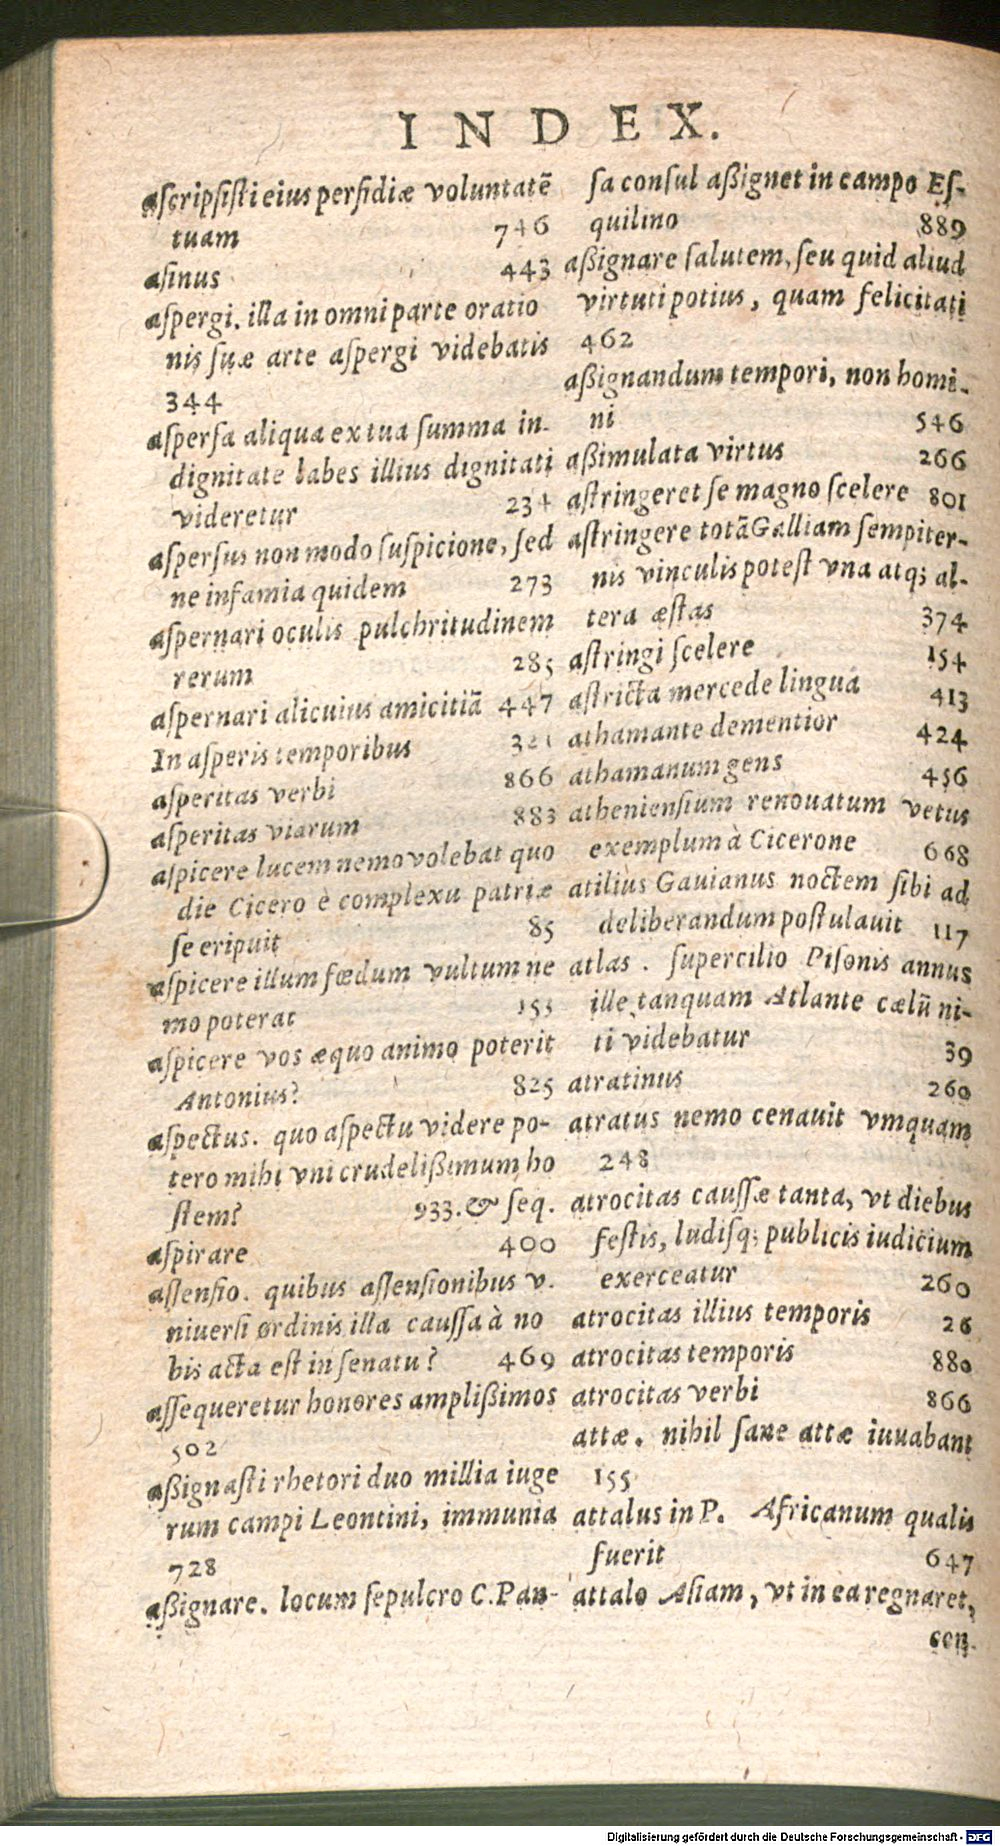 INDEX.
aſcripſiſti eius perfidiæ voluntatē
tuam 746
aſinus 443
aſpergi. illa in omni parte oratio
nis ſuæ arte aſpergi videbatis
344
aſperſa aliqua ex tua ſumma in-
dignitate labes illius dignitati
videretur 234
aſperſus non modo ſuſpicione, ſed
ne infamia quidem 273
aſpernari oculis pulchritudinem
rerum 285
aſpernari alicuius amicitiā 447
In aſperis temporibus 321
aſperitas verbi 866
aſperitas viarum 883
aſpicere lucem nemo volebat quo
die Cicero è complexu patriæ
ſe eripuit 85
aſpicere illum fœdum vultum ne
mo poterat 153
aſpicere vos æquo animo poterit
Antonius? 825
aſpectus. quo aſpectu videre po-
tero mihi vni crudelißimum ho
ſtem? 933. & ſeq.
aſpirare 400
aſſenſio. quibus aſſenſionibus v.
niuerſi ordinis illa cauſſa à no
bis acta eſt in ſenatu? 469
aſſequeretur honores amplißimos
502
aßignaſti rhetori duo millia iuge
rum campi Leontini, immunia
728
aßignare. locum ſepulcro C. Pan-
ſa conſul aßignet in campo Eſ-
quilino 889
aßignare ſalutem, ſeu quid aliud
virtuti potius, quam felicitati
462
aßignandum tempori, non homi-
ni 546
aßimulata virtus 266
aſtringeret ſe magno ſcelere 801
aſtringere totā Galliam ſempiter-
nis vinculis poteſt vna atq; al-
tera æſtas 374
aſtringi ſcelere 154
aſtricta mercede lingua 413
athamante dementior 424
athamanum gens 456
athenienſium renouatum vetus
exemplum à Cicerone 668
atilius Gauianus noctem ſibi ad
deliberandum poſtulauit 117
atlas. ſupercilio Piſonis annus
ille tanquam Atlante cælū ni-
ti videbatur 39
atratinus 260
atratus nemo cenauit vmquam
248
atrocitas cauſſæ tanta, vt diebus
feſtis, ludiſq; publicis iudicium
exerceatur 260
atrocitas illius temporis 26
atrocitas temporis 880
atrocitas verbi 866
attæ. nihil ſane attæ iuuabant
155
attalus in P. Africanum qualis
fuerit 647
attalo Aſiam, vt in ea regnaret,
cen-
Digitalisierung gefördert durch die Deutsche Forschungsgemeinschaft - DFG